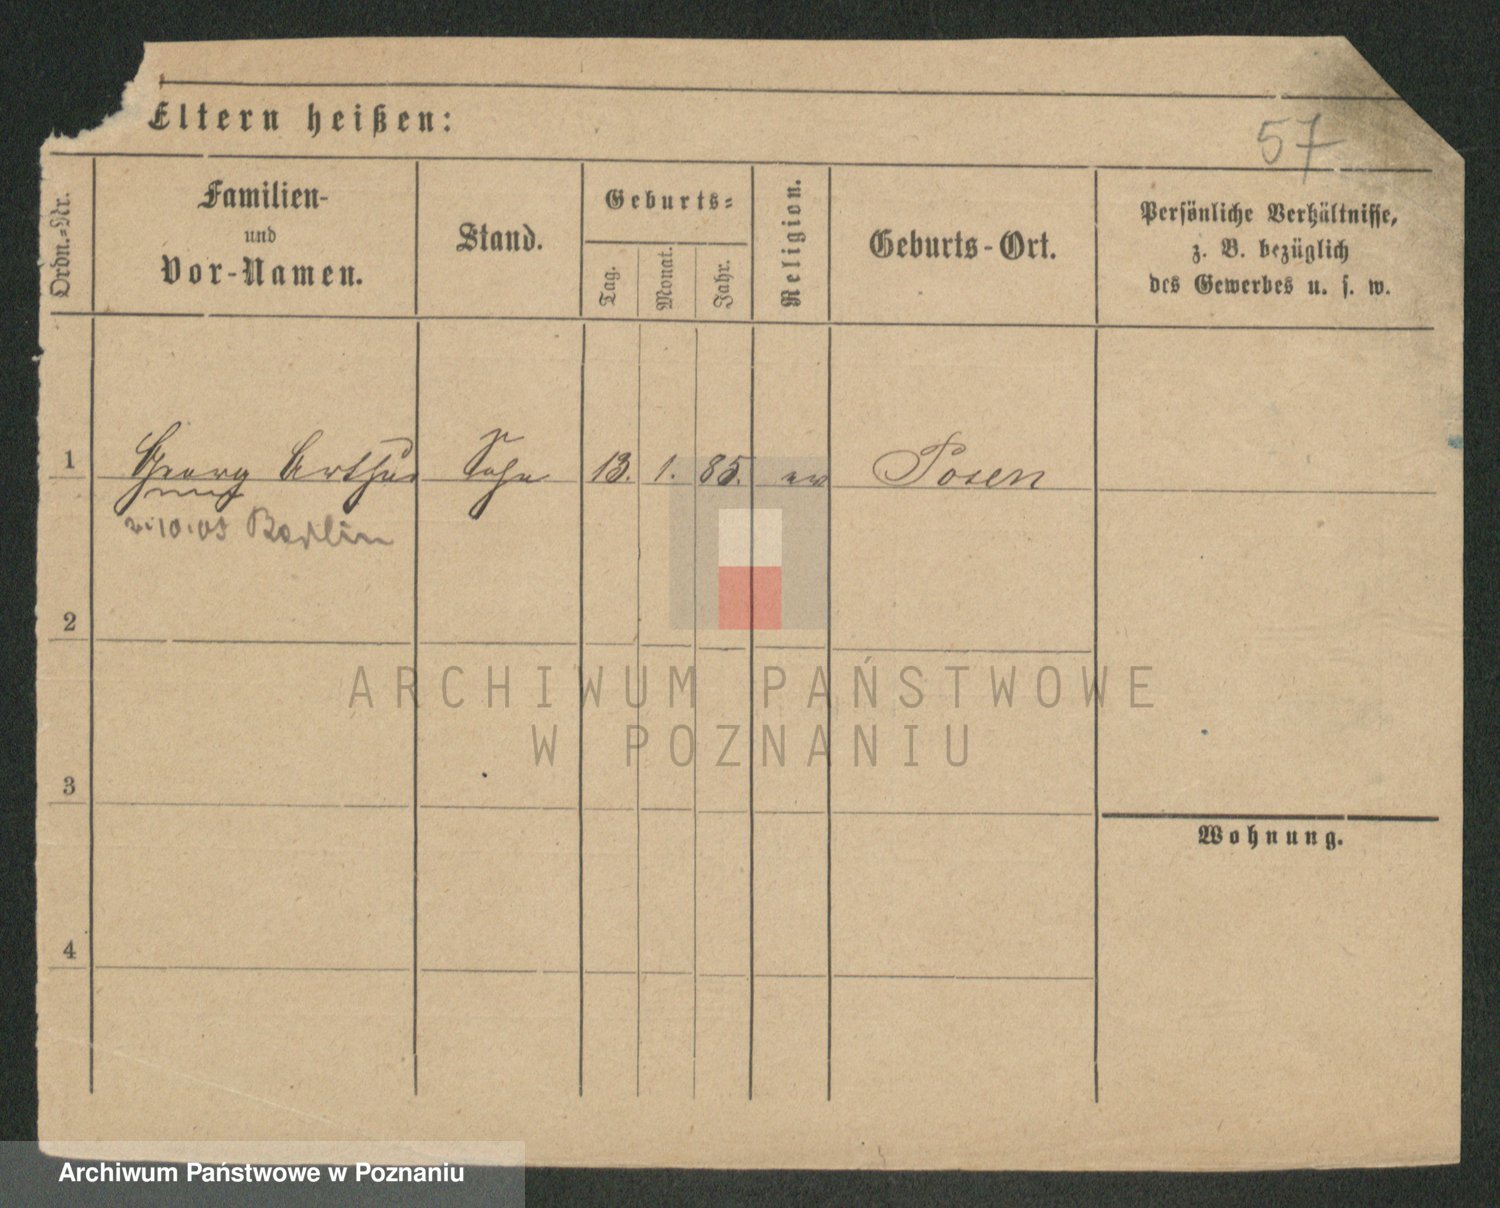 57
Eltern heißen:
Ordn.-Nr.
Familien-
und
Vor-Namen.
Stand.
Geburts-
Tag.
Monat.
Jahr.
Religion.
Geburts-Ort.
Persönliche Verhältnisse,
z. B. bezüglich
des Gewerbes u. s. w.
1 Georg Arthur Sohn 13. 1. 85. ev Posen
10.05 Berlin
2
3
4
Wohnung.
ARCHIWUM PAŃSTWOWE
W POZNANIU
Archiwum Państwowe w Poznaniu